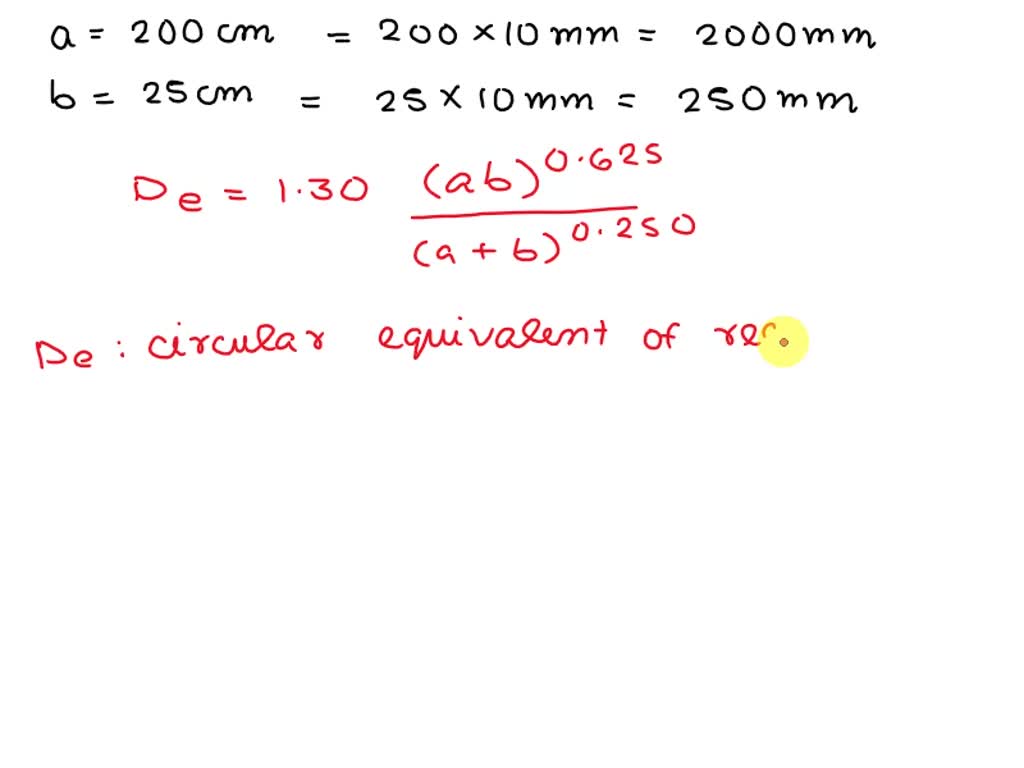 a = 200 cm = 200 × 10 mm = 2000 mm
b = 25 cm = 25 × 10 mm = 250 mm
De = 1.30 (ab)^0.625 / (a + b)^0.250
De : circular equivalent of rec